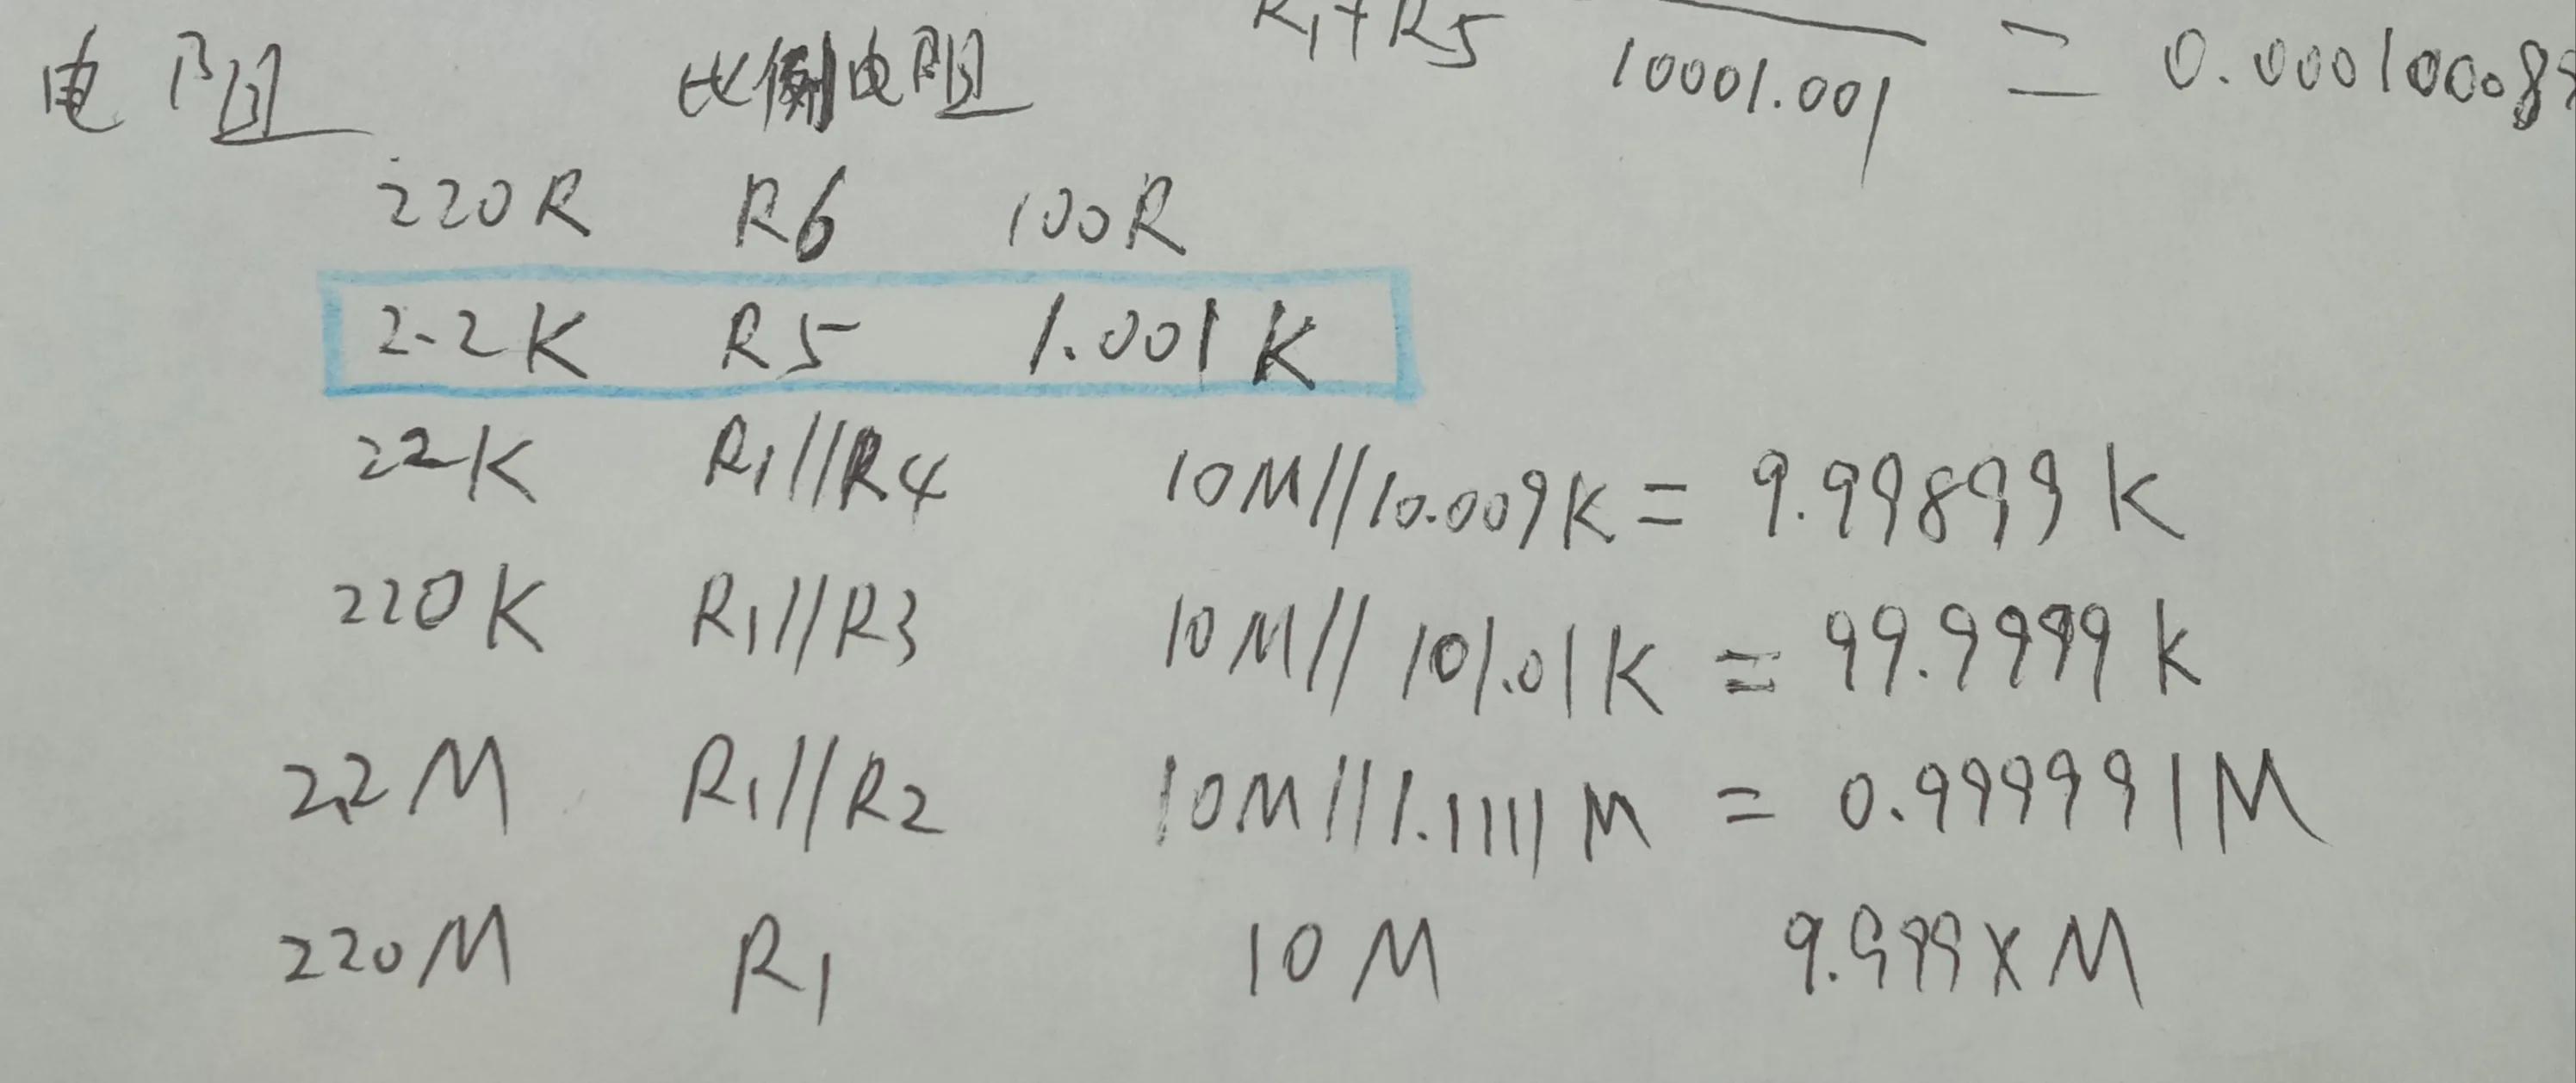 R1+R5 10001.001 = 0.00010008
电阻 比例电阻
220R R6 100R
2.2K R5 1.001K
22K R1//R4 10M//10.009K = 9.99899K
220K R1//R3 10M//101.01K = 99.9999K
2.2M R1//R2 10M//1.1111M = 0.9999991M
220M R1 10M 9.999XM